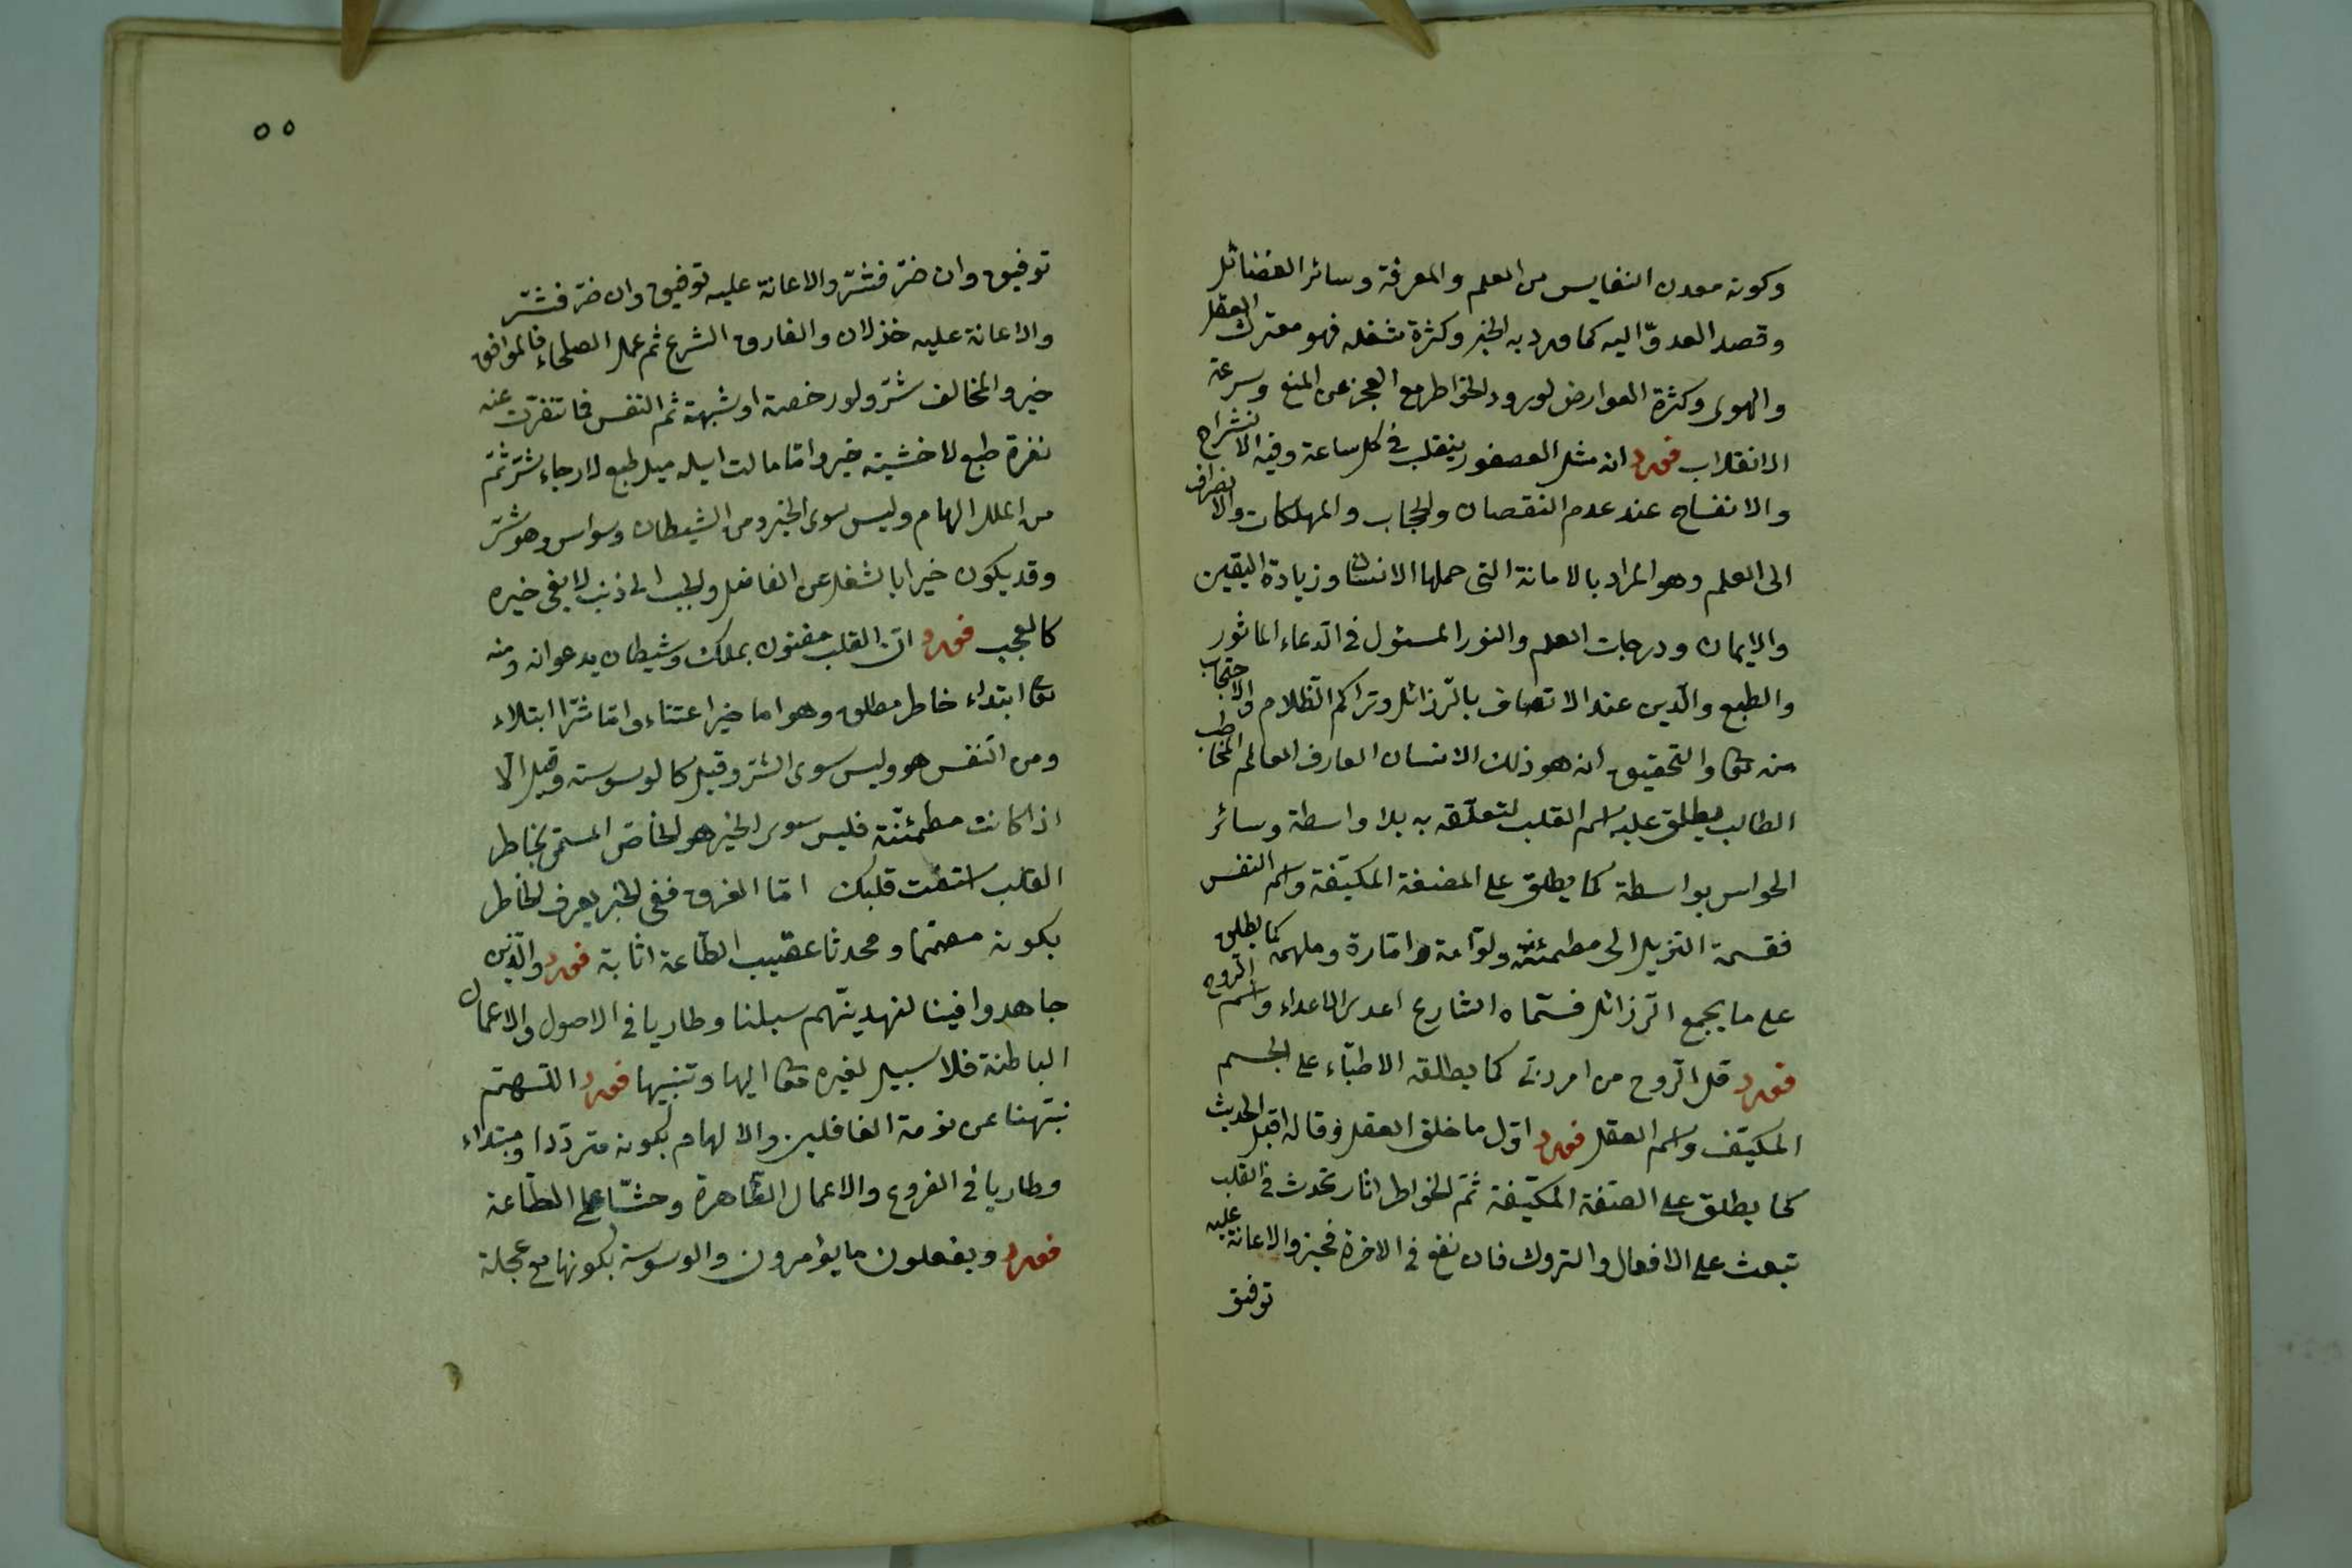 وكونه معدن النفايس من العلم والمعرفة وسائر الفضائل
وقصد العدوّ اليه كما ورد به الخبر وكثرة شغله فهو معترك العقل
والهوى وكثرة العوارض لورود الخواطر مع العجز عن المنع وسرعة
الانقلاب فورد انه مثل العصفور ينقلب في كل ساعة وفيه الانشراح
والانفساح عند عدم النقصان والحجاب والمهلكات والانصراف
الى العلم وهو المراد بالامانة التى حملها الانسان وزيادة اليقين
والايمان ودرجات العلم والنور المسئول فى الدعاء الماثور
والطبع والرّين عند الاتصاف بالرّذائل وتراكم الظّلام والاحتجاب
منه تعا والتحقيق انه هو ذلك الانسان العارف العالم المخاطب
الطالب يطلق عليه اسم القلب لتعلّقه به بلا واسطة وسائر
الحواس بواسطة كما يطلق على المضغة المكيّفة واسم النفس
فقسمة التنزيل الى مطمئنّة ولوّامة وامّارة وملهمة كما يطلق
على ما يجمع الرّزائل فسمّاه الشارع اعدى الاعداء واسم الروح
فورد قل الرّوح من امر ربّى كما يطلقه الاطبّاء على الجسم
المكيّف واسم العقل فورد اوّل ما خلق العقل وقال اقبل الحديث
كما يطلق على الصفة المكيّفة ثمّ الخواطر اثار تحدث في القلب
تبعث على الافعال والتروك فان نفع فى الاخرة فخير والاعانة عليه
توفيق
٥٥
توفيق وان ضرّ فشرّ والاعانة عليه توفيق وان ضرّ فشرّ
والاعانة عليه خذلان والفارق الشرع ثم عمل الصلحاء فالموافق
خير والمخالف شرّ ولو رخصة او شبهة ثم النفس فما تنفرت عنه
نفرة طبع لا خشية خير وامّا ما مالت اليه ميل طبع لا رجاء شر ثمّ
من الملك الهام وليس سوى الخير ومن الشيطان وسواس وهو شرّ
وقد يكون خيرا بالشغل عن الفاضل والجب الى ذنب لا يفى خيره
كالعجب فورد انّ القلب مفتون بملك وشيطان يدعوانه ومنه
تعا ابتداء خاطر مطلق وهو اما خير اعتناء وامّا شرّا ابتلاء
ومن النّفس هو وليس سوى الشرّ وقيل كالوسوسة وقيل الّا
اذا كانت مطمئنّة فليس سوى الخير هو الخاصّ المسمّى بخاطر
القلب استفت قلبك امّا الفرق ففى الخير يعرف الخاطر
بكونه مصمّما ومحدثا عقيب الطّاعة اثابة فورد والّذين
جاهدوا فينا لنهدينّهم سبلنا وطاريا فى الاصول والاعمال
الباطنة فلا سبيل لغيره تعا اليها وتنبيها فورد اللهمّ
نبّهنا عن نومة الغافلين والالهام بكونه متردّدا ومبتداء
وطاريا فى الفروع والاعمال الظّاهرة وحثّا على الطّاعة
فورد ويفعلون ما يؤمرون والوسوسة بكونها مع عجلة